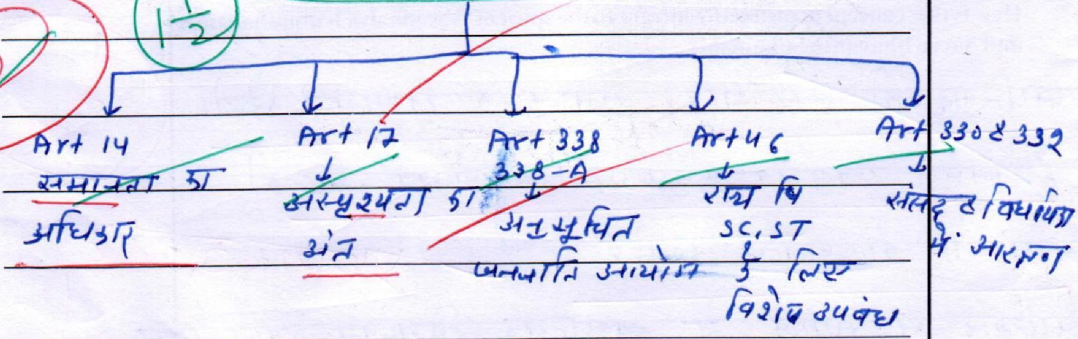 1 1/2
Art 14
समानता का
अधिकार
Art 17
↓
अस्पृश्यता का
अंत
Art 338
338-A
↓
अनुसूचित
जनजाति आयोग
Art 46
↓
राज्य
SC, ST
के लिए
विशेष उपबंध
Art 330 & 332
↓
संसद व विधायिका
में आरक्षण